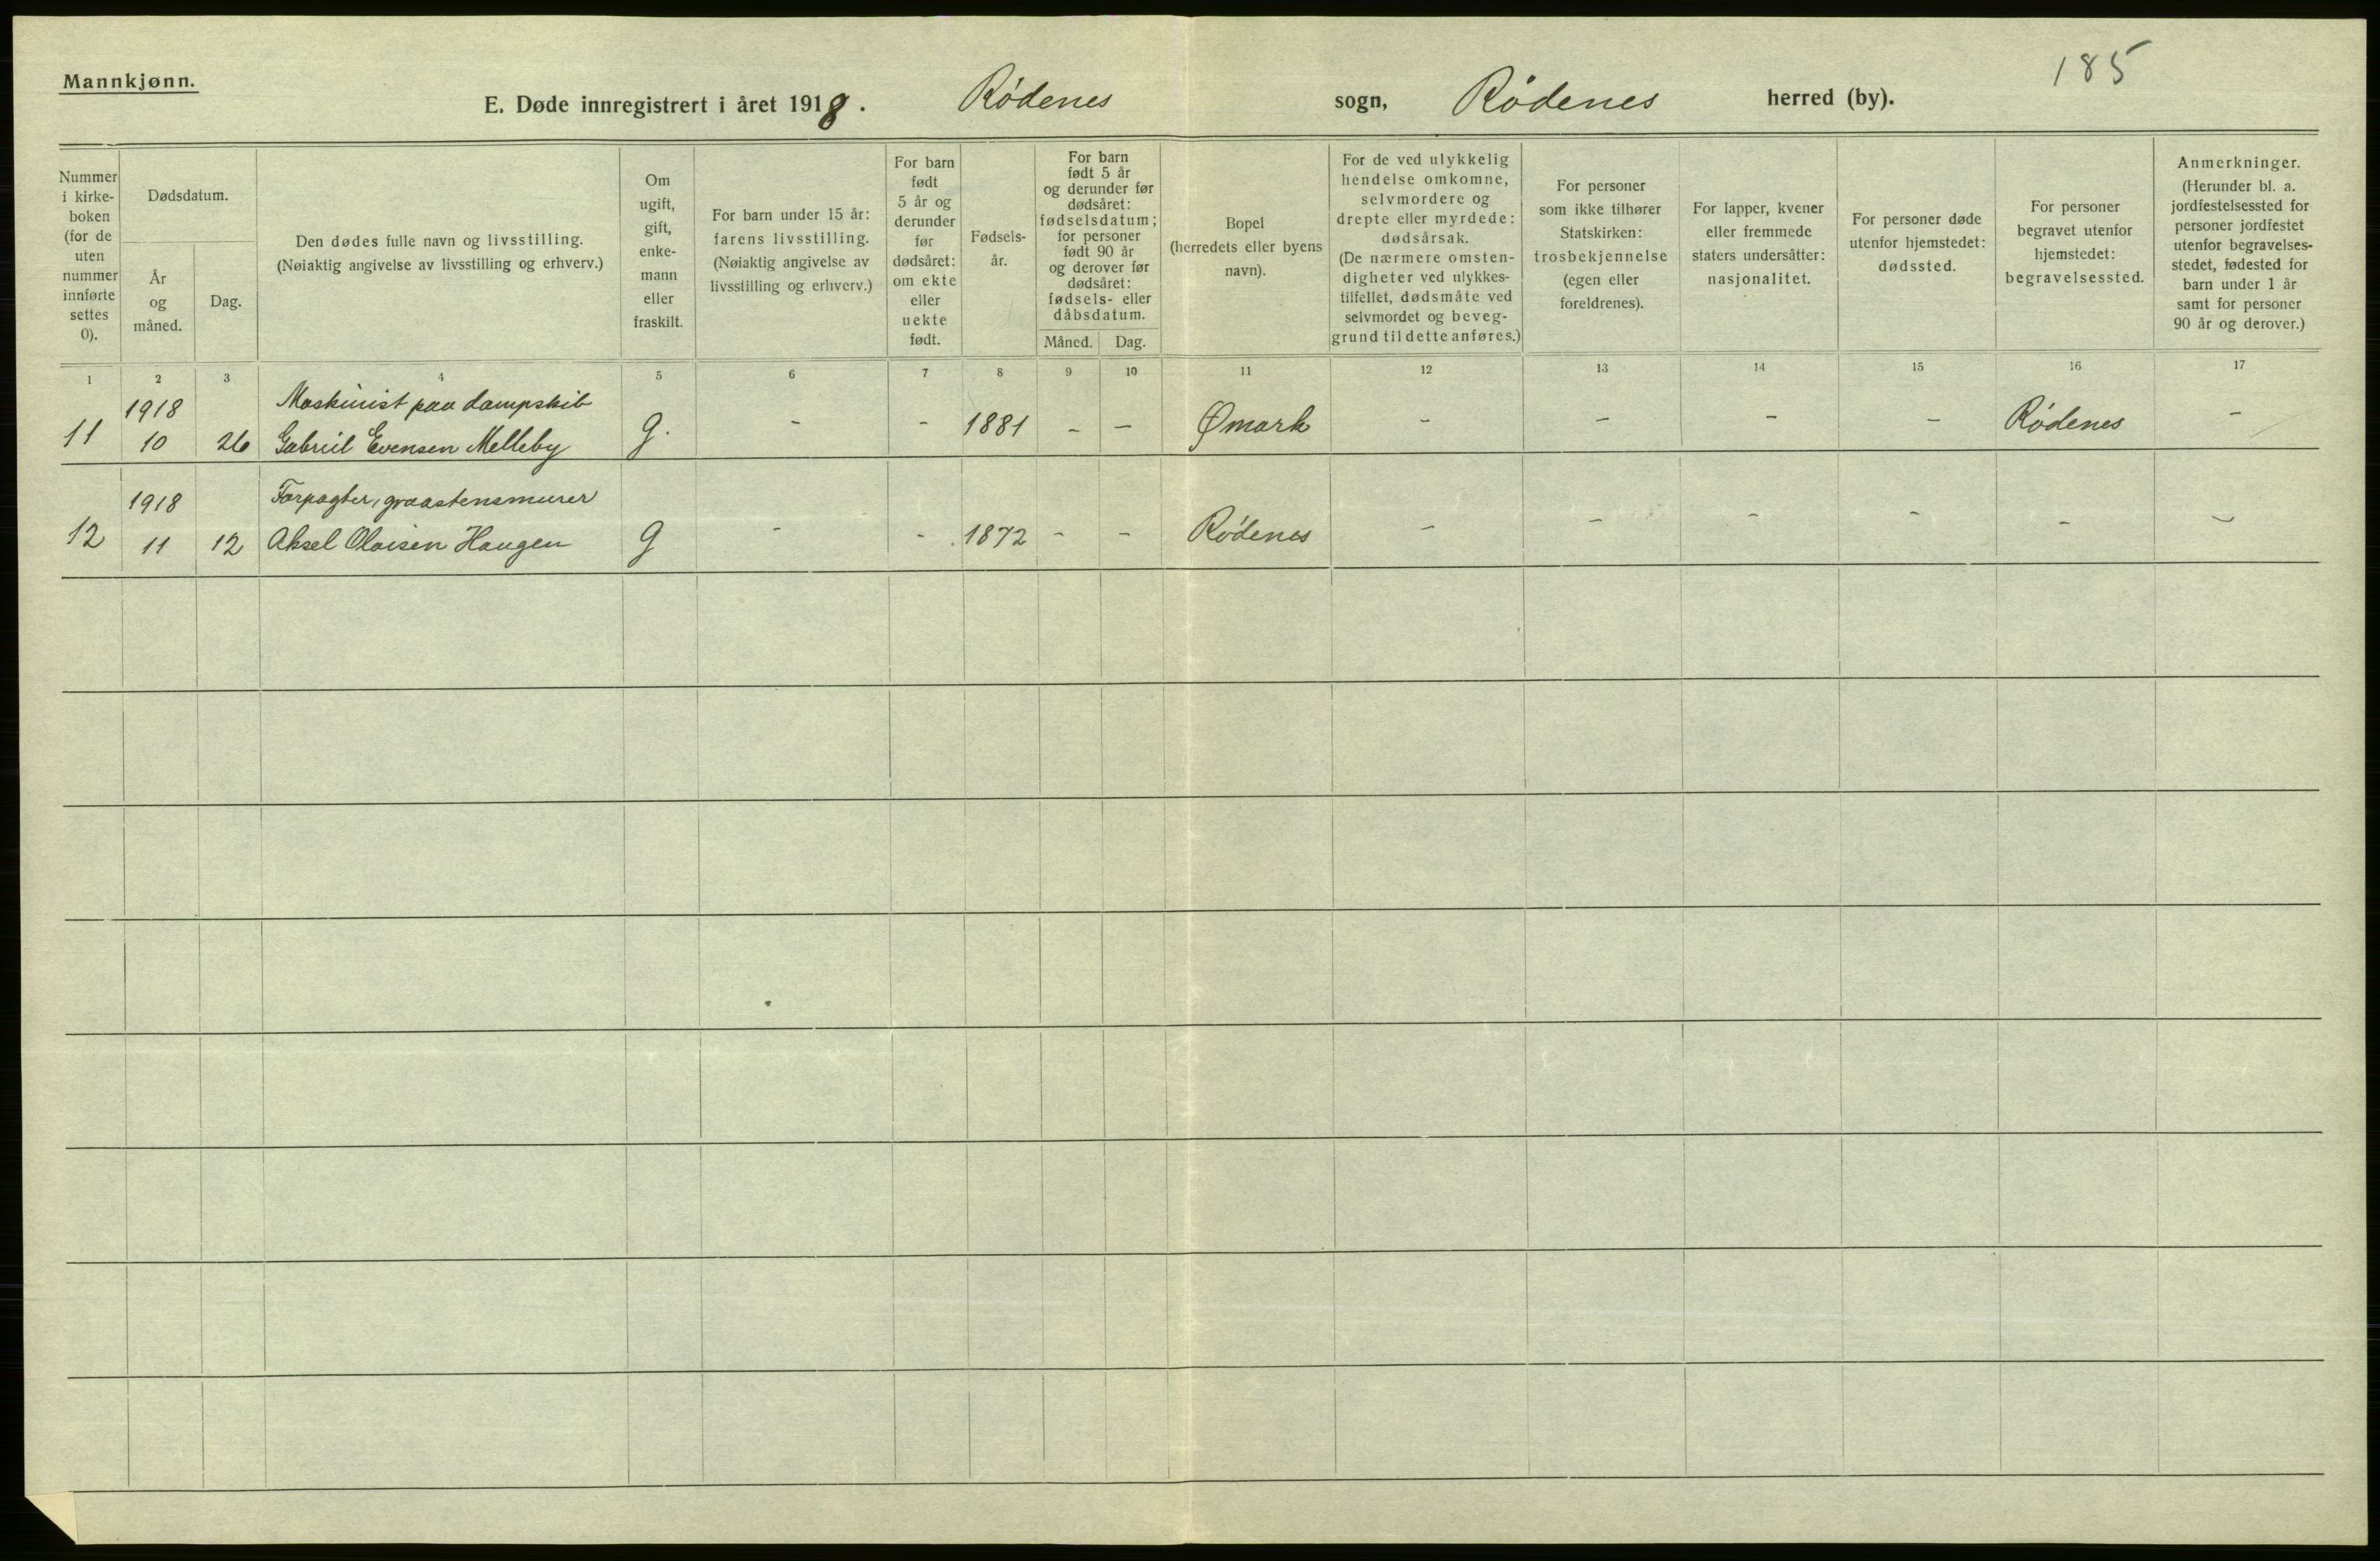 185
Mannkjønn.
E. Døde innregistrert i året 1918. Rødenes sogn, Rødenes herred (by).
Nummer
i kirke-
boken
(for de
uten
nummer
innførte
settes
0).
Dødsdatum.
År
og
måned.
Dag.
Den dødes fulle navn og livsstilling.
(Nøiaktig angivelse av livsstilling og erhverv.)
Om
ugift,
gift,
enke-
mann
eller
fraskilt.
For barn under 15 år:
farens livsstilling.
(Nøiaktig angivelse av
livsstilling og erhverv.)
For barn
født
5 år og
derunder
før
dødsåret:
om ekte
eller
uekte
født.
Fødsels-
år.
For barn
født 5 år
og derunder før
dødsåret:
fødselsdatum;
for personer
født 90 år
og derover før
dødsåret:
fødsels- eller
dåbsdatum.
Måned. Dag.
Bopel
(herredets eller byens
navn).
For de ved ulykkelig
hendelse omkomne,
selvmordere og
drepte eller myrdede:
dødsårsak.
(De nærmere omsten-
digheter ved ulykkes-
tilfellet, dødsmåte ved
selvmordet og beveg-
grund til dette anføres.)
For personer
som ikke tilhører
Statskirken:
trosbekjennelse
(egen eller
foreldrenes).
For lapper, kvener
eller fremmede
staters undersåtter:
nasjonalitet.
For personer døde
utenfor hjemstedet:
dødssted.
For personer
begravet utenfor
hjemstedet:
begravelsessted.
Anmerkninger.
(Herunder bl. a.
jordfestelsessted for
personer jordfestet
utenfor begravelses-
stedet, fødested for
barn under 1 år
samt for personer
90 år og derover.)
1 2 3 4 5 6 7 8 9 10 11 12 13 14 15 16 17
1918 Maskinist paa dampskib
11 10 26 Gabriel Evensen Melleby g. - - 1881 - - Ømark - - - - Rødenes -
1918 Forpagter, graastensmurer
12 11 12 Aksel Olaisen Haugen g - - 1872 - - Rødenes - - - - - -